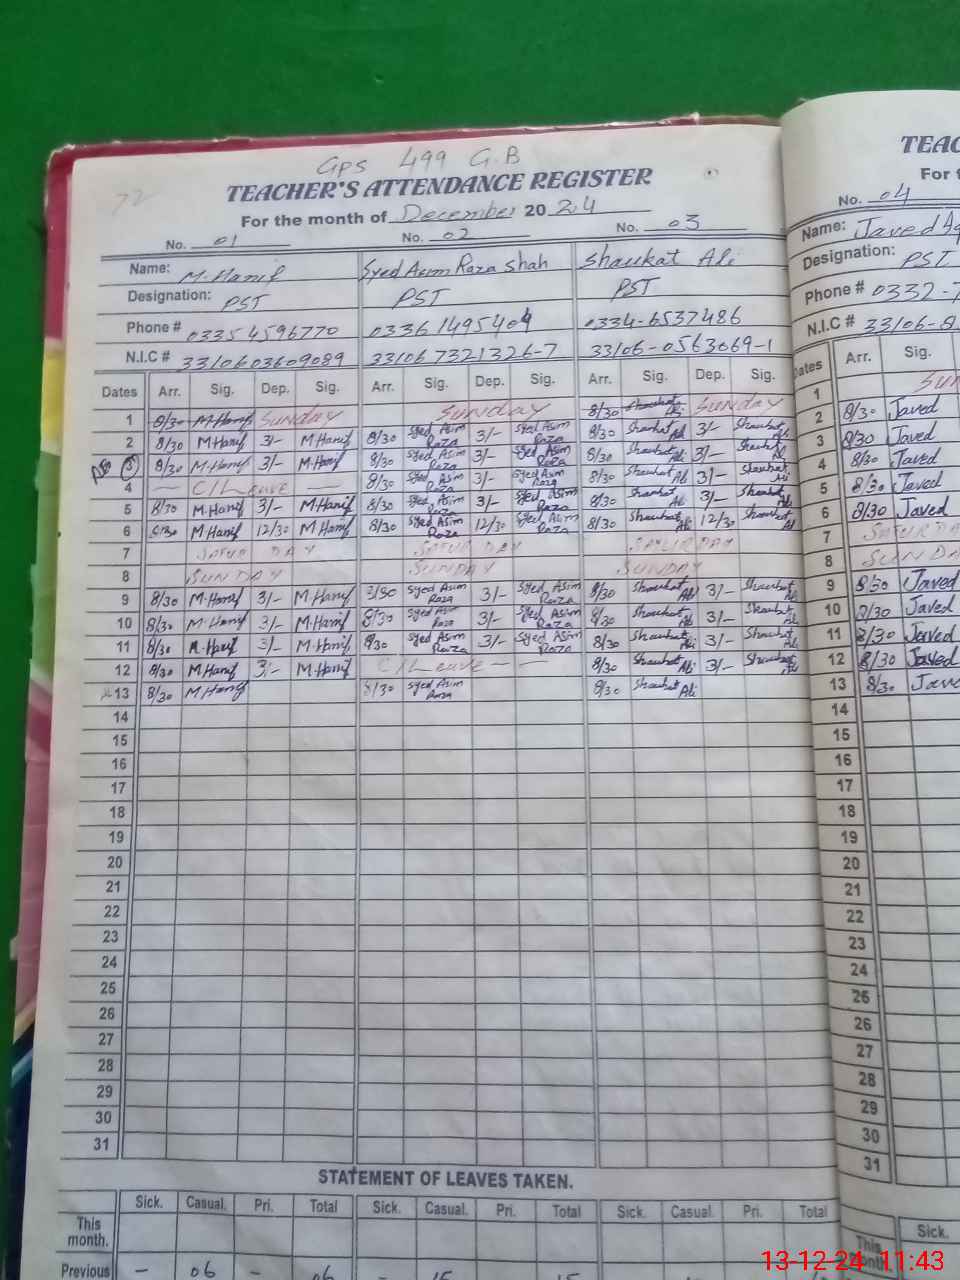 GPS 499 G.B
72
TEACHER'S ATTENDANCE REGISTER
For the month of December 2024
No. 01 No. 02 No. 03
Name: M. Hanif Syed Asim Raza Shah Shaukat Ali
Designation: PST PST PST
Phone # 03354596770 03361495404 0334-6537486
N.I.C # 33106 03609089 33106 7321326-7 33106-0563069-1
Dates Arr. Sig. Dep. Sig. Arr. Sig. Dep. Sig. Arr. Sig. Dep. Sig.
1 8/30 M.Hanif SUNDAY SUNDAY 8/30 Shaukat Ali SUNDAY
2 8/30 M.Hanif 3/- M.Hanif 8/30 Syed Asim Raza 3/- Syed Asim Raza 8/30 Shaukat Ali 3/- Shaukat Ali
3 8/30 M.Hanif 3/- M.Hanif 8/30 Syed Asim Raza 3/- Syed Asim Raza 8/30 Shaukat Ali 3/- Shaukat Ali
4 — C/Leave — 8/30 Syed Asim Raza 3/- Syed Asim Raza 8/30 Shaukat Ali 3/- Shaukat Ali
5 8/30 M.Hanif 3/- M.Hanif 8/30 Syed Asim Raza 3/- Syed Asim Raza 8/30 Shaukat Ali 3/- Shaukat Ali
6 8/30 M.Hanif 12/30 M.Hanif 8/30 Syed Asim Raza 12/30 Syed Asim Raza 8/30 Shaukat Ali 12/30 Shaukat Ali
7 SATURDAY SATURDAY SATURDAY
8 SUNDAY SUNDAY SUNDAY
9 8/30 M.Hanif 3/- M.Hanif 8/30 Syed Asim Raza 3/- Syed Asim Raza 8/30 Shaukat Ali 3/- Shaukat Ali
10 8/30 M.Hanif 3/- M.Hanif 8/30 Syed Asim Raza 3/- Syed Asim Raza 8/30 Shaukat Ali 3/- Shaukat Ali
11 8/30 M.Hanif 3/- M.Hanif 8/30 Syed Asim Raza 3/- Syed Asim Raza 8/30 Shaukat Ali 3/- Shaukat Ali
12 8/30 M.Hanif 3/- M.Hanif C/Leave — — 8/30 Shaukat Ali 3/- Shaukat Ali
13 8/30 M.Hanif 8/30 Syed Asim Raza 8/30 Shaukat Ali
14
15
16
17
18
19
20
21
22
23
24
25
26
27
28
29
30
31
STATEMENT OF LEAVES TAKEN.
Sick. Casual. Pri. Total Sick. Casual. Pri. Total Sick. Casual. Pri. Total
This month.
Previous - 06 - 06 - 15 15
TEAC
For t
No. 04
Name: Javed
Designation: PST
Phone # 0332-7
N.I.C # 33106-8
Dates Arr. Sig.
1 SUN
2 8/30 Javed
3 8/30 Javed
4 8/30 Javed
5 8/30 Javed
6 8/30 Javed
7 SATURDA
8 SUNDA
9 8/30 Javed
10 8/30 Javed
11 8/30 Javed
12 8/30 Javed
13 8/30 Jave
14
15
16
17
18
19
20
21
22
23
24
25
26
27
28
29
30
31
Sick.
This month.
13-12-24 11:43